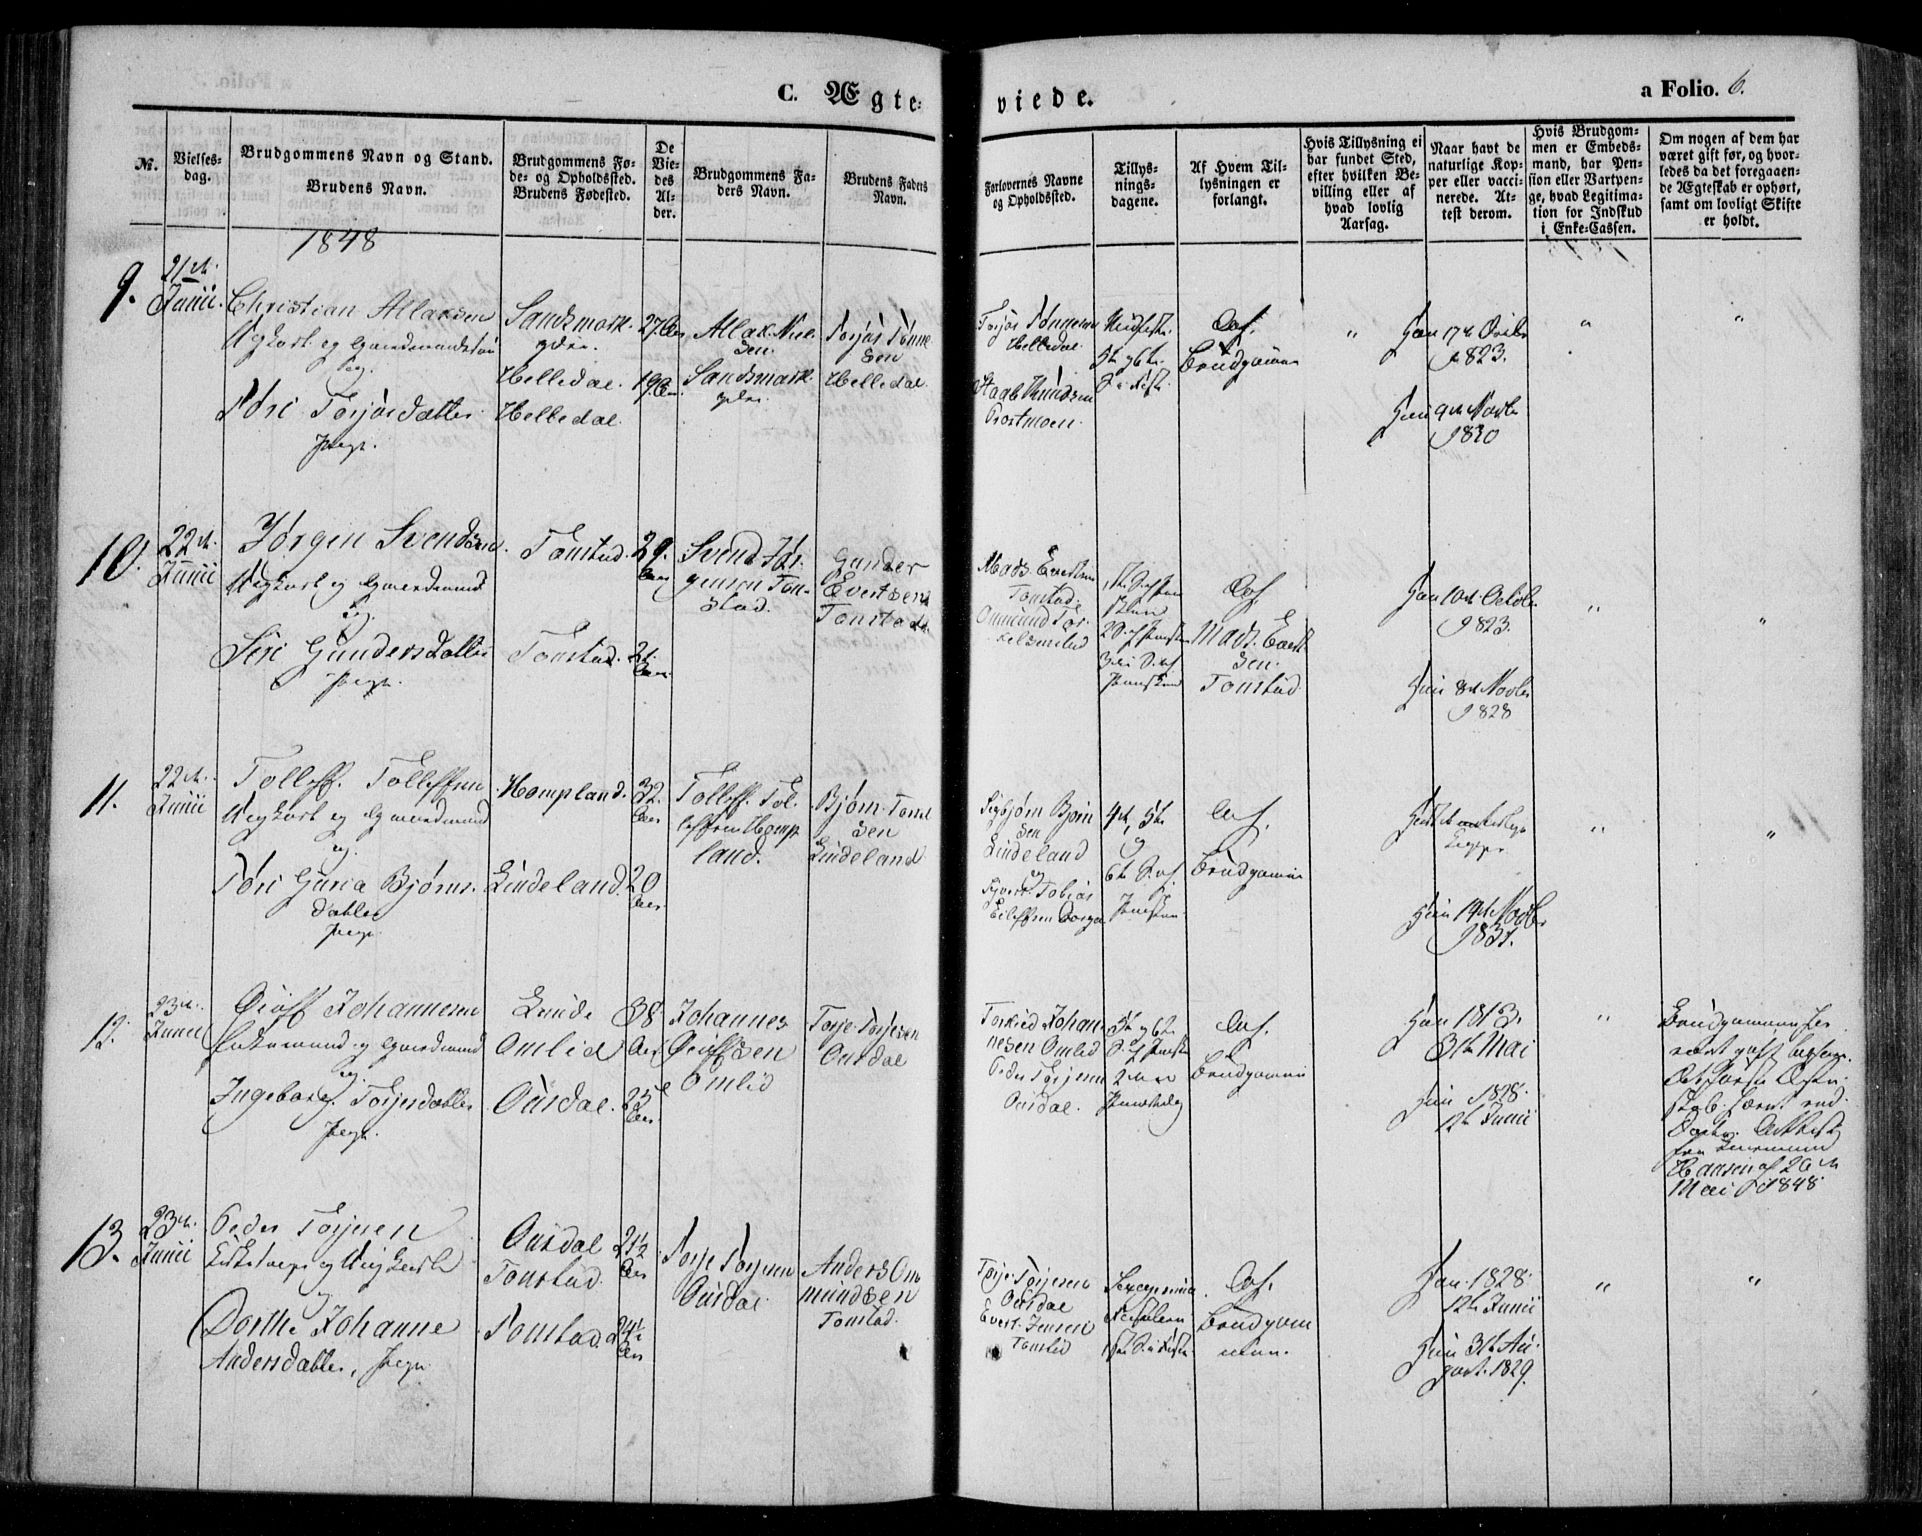 C. Ægte-
viede.
a Folio. 6.
№.
Vielses-
dag.
Brudgommens Navn og Stand.
Brudens Navn.
Brudgommens Fø-
de- og Opholdssted.
Brudens Fødested.
De
Vie-
des
Al-
der.
Brudgommens Fa-
ders Navn.
Brudens Faders
Navn.
Forlovernes Navne
og Opholdssted.
Tillys-
nings-
dagene.
Af Hvem Til-
lysningen er
forlangt.
Hvis Tillysning ei
har fundet Sted,
efter hvilken Be-
villing eller af
hvad lovlig
Aarsag.
Naar havt de
naturlige Kop-
per eller vacci-
nerede. At-
test derom.
Hvis Brudgom-
men er Embeds-
mand, har Pen-
sion eller Vartpen-
ge, hvad Legitima-
tion for Indskud
i Enke-Cassen.
Om nogen af dem har
været gift før, og hvor-
ledes da det foregaaen-
de Ægteskab er ophørt,
samt om lovligt Skifte
er holdt.
1848
9.
21de
Junii.
Christian Allaksen
Ungkarl og Gaardmandssøn
og
Tøri Torjøsdatter
Pige.
Sandsmark
Helledal.
Helledal.
27 Aar
19 Aar.
Allak Niel-
sen
Sandsmark
Torjøs Tønne
sen
Helledal.
Torjøs Tønnesen
Helledal
Knudsen
Prostmoen.
5te og 6te
Af
Brudgommen
"
Han 17de Octbr
1823.
Hun 9de Novbr
1830
"
"
10.
22de
Junii
Jørgen Svendsen
Ungkarl og Gaardmand
og
Siri Gundersdatter
Pige.
Tonstad.
Tonstad.
29.
Aar
21.
Aar
Svend Jør-
gensen Ton-
stad.
Gunder
Evertsen
Tonstad.
Mads Evertsen
Tonstad
Ommund Tor-
kelsen
Af
Mads Evert
sen
Tonstad.
Han 10de Octbr
1823.
Hun 8de Novbr
1828
"
"
11.
22de
Junii
Tolleff Tolleffsen
Ungkarl og Gaardmand
og
Tøri Guria Bjørns-
datter
Pige.
Hompland.
Lindeland.
32.
Aar
20
Aar
Tolleff Tol-
leffsen Homp-
land.
Bjørn Tønne
sen
Lindeland.
Sigbjørn Bjørn
sen
Lindeland
og
Sivert Tobias
Eileffsen
4de, 5te
og
6te S. af
Af
Brudgommen
Hun 14de Novbr
1831.
"
"
12.
23de
Junii
Oluff Johannesen
Enkemand og Gaardmand
og
Ingeborg Torjesdatter
Pige.
Lunde
Omlid
Ousdal.
38
Aar
25
Aar
Johannes
Oluffsen
Omlid
Torje Torjesen
Ousdal
Torkild Johan-
nesen Omlid
Peder Torjesen
Ousdal.
5te og 6te
Af
Brudgommen
Han 1813.
31te Mai
Hun 1828.
12te Junii
"
Brudgommen har
været gift
Attest
fra
Hansen af 26de
Mai 1848.
13.
23de
Junii
Peder Torjesen
Kirkesanger og Ungkarl
og
Dorthe Johanne
Andersdatter, Pige
Ousdal
Tonstad.
Tonstad.
21½
Aar
21½
Aar
Torje Torjesen
Ousdal
Anders Om
mundsen
Tonstad.
Torje Torjesen
Ousdal
Evert Jensen
Tonstad
Af
Brudgom
men.
Han 1828.
12te Junii
Hun 31te Au-
gust 1829.
"
"